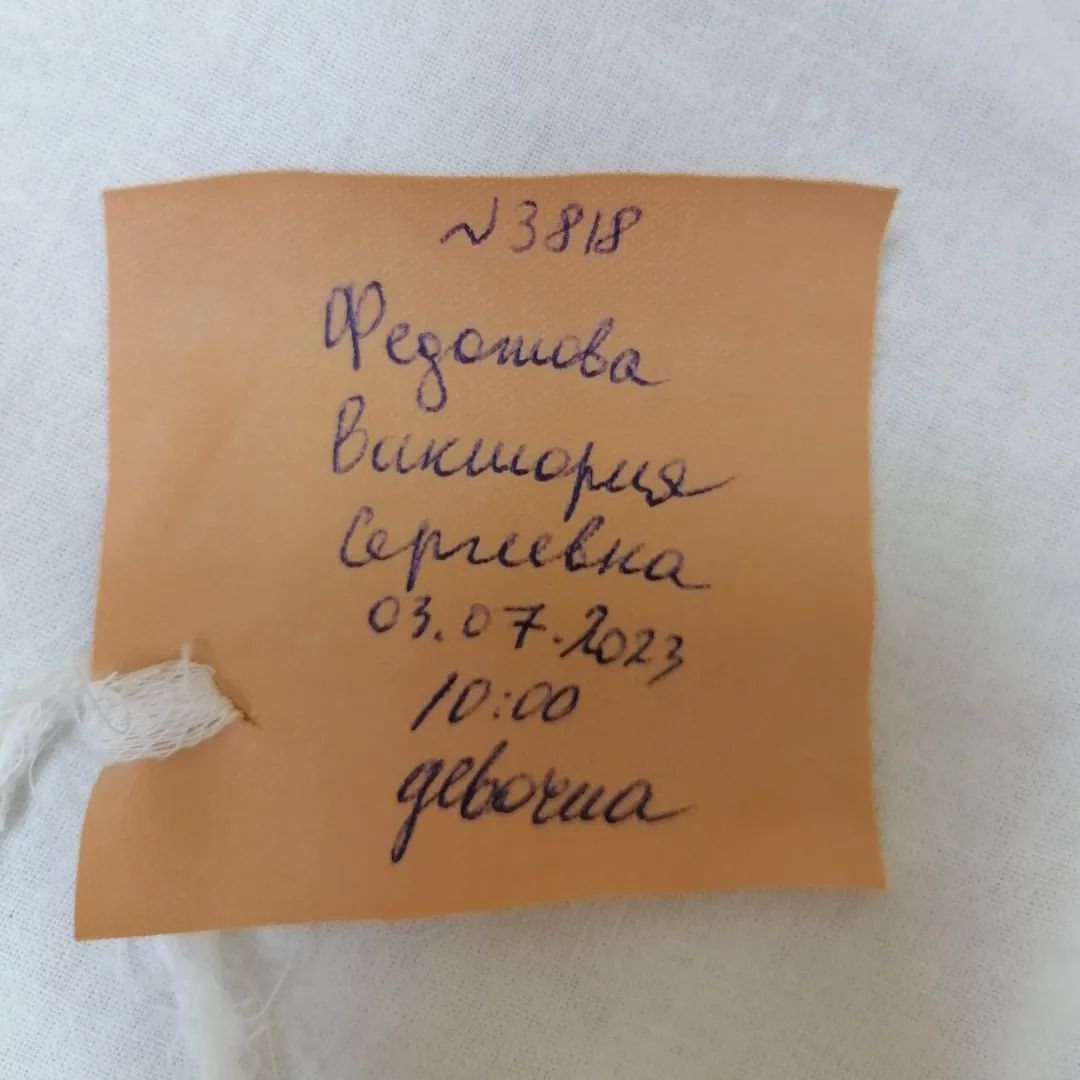 №3818
Федотова
Виктория
Сергеевна
03.07.2023
10:00
девочка